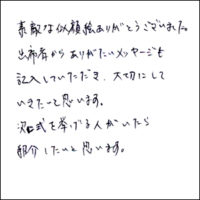 素敵な似顔絵ありがとうございました。
出席者からありがたいメッセージも
記入していただき、大切にして
いきたーと思います。
次回式を挙げる人がいたら
紹介したいと思います。